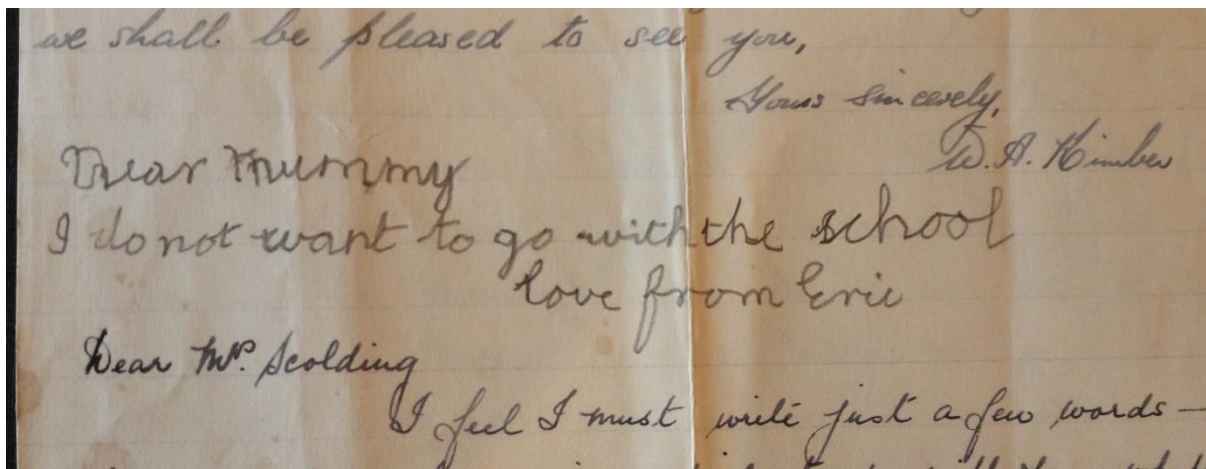 we shall be pleased to see you,
Yours sincerely,
W. A. Kimber
Dear Mummy
I do not want to go with the school
love from Eric
Dear Mrs. Scolding
I feel I must write just a few words —